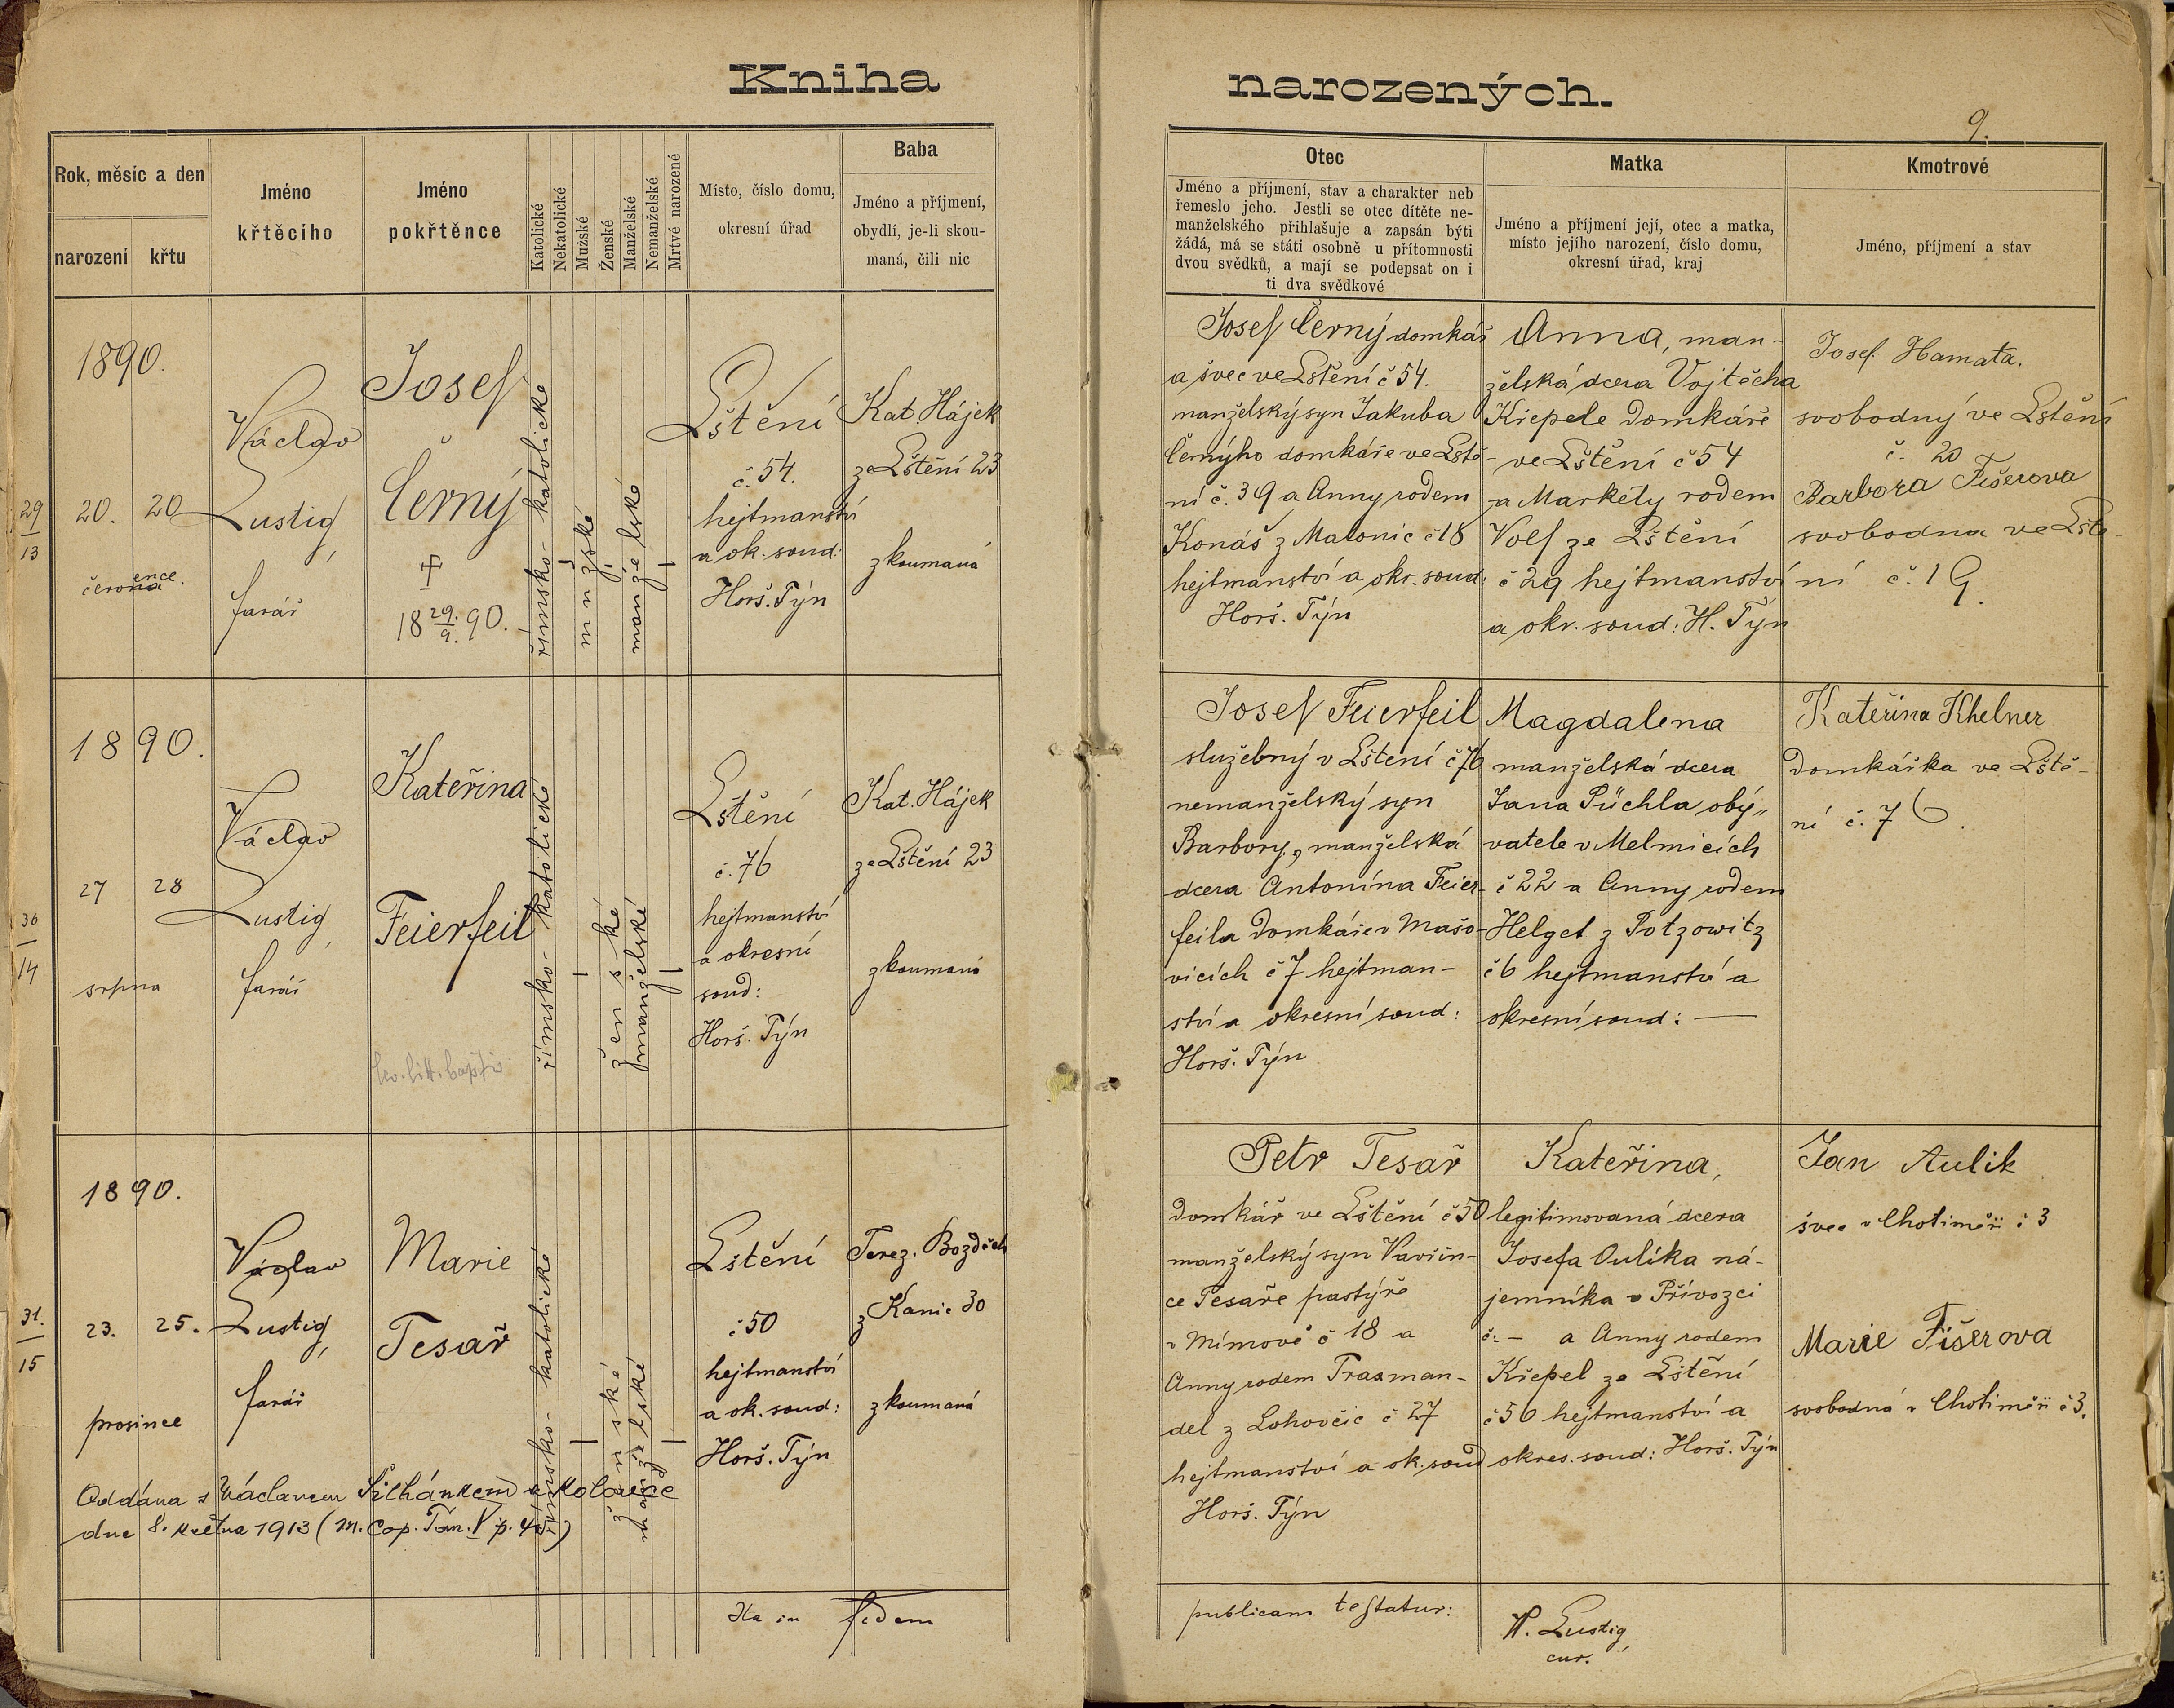 Kniha narozených.
9.
Rok, měsíc a den
narození
křtu
Jméno
křtěcího
Jméno
pokřtěnce
Katolické
Nekatolické
Mužské
Ženské
Manželské
Nemanželské
Mrtvě narozené
Místo, číslo domu,
okresní úřad
Baba
Jméno a příjmení,
obydlí, je-li skou-
maná, čili nic
Otec
Jméno a příjmení, stav a charakter neb
řemeslo jeho. Jestli se otec dítěte ne-
manželského přihlašuje a zapsán býti
žádá, má se státi osobně u přítomnosti
dvou svědků, a mají se podepsat on i
ti dva svědkové
Matka
Jméno a příjmení její, otec a matka,
místo jejího narození, číslo domu,
okresní úřad, kraj
Kmotrové
Jméno, příjmení a stav
29
13
1890.
20. 20
července
Václav
Lustig,
farář
Josef
Černý
18 29./9. 90.
římsko-katolické
mužské
manželské
Lštění
č. 54.
hejtmanství
a ok. soud:
Horš. Týn
Kat. Hájek
ze Lštění 23
zkoumaná
Josef Černý domkář
a švec ve Lštění č 54.
manželský syn Jakuba
Černýho domkáře ve Lště-
ní č. 39 a Anny rodem
Konáš z Malonic č 18
hejtmanství a okr. soud:
Horš. Týn
Anna, man-
želská dcera Vojtěcha
Křepele domkáře
ve Lštění č 54
a Markéty rodem
Volf ze Lštění
č 29 hejtmanství
a okr. soud: H. Týn
Josef Hamata.
svobodný ve Lštění
č. 20
Barbora Fišerova
svobodna ve Lště-
ní č. 19.
30
14
1890.
27 28
srpna
Václav
Lustig
farář
Kateřina
Feierfeil
římsko-katolické
ženské
manželské
Lštění
č. 76
hejtmanství
a okresní
soud:
Horš. Týn
Kat. Hájek
ze Lštění 23
zkoumaná
Josef Feierfeil
služebný v Lštení č 76
nemanželský syn
Barbory, manželská
dcera Antonína Feier-
feila domkáře v Mašo-
vicích č 7 hejtman-
ství a okresní soud:
Horš. Týn
Magdalena
manželská dcera
Jana Püchla obý„
vatele v Melmicích
č 22 a Anny rodem
Helget z Potzowitz
č 6 hejtmanství a
okresní soud: —
Kateřina Khelner
domkářka ve Lště-
ní č. 76.
31.
15
1890.
23. 25.
prosince
Václav
Lustig,
farář
Marie
Tesař
římsko-katolické
ženské
manželské
Lštění
č 50
hejtmanství
a ok. soud:
Horš. Týn
Terez. Bozděch
z Kanic 30
zkoumaná
Petr Tesař
domkář ve Lštění č 50
manželský syn Vavřin-
ce Tesaře pastýře
v Mímově č 18 a
Anny rodem Trasman-
del z Lohovčic č 27
hejtmanství a ok. soud
Horš. Týn
Kateřina,
legitimovaná dcera
Josefa Oulíka ná-
jemníka v Přívozci
č: — a Anny rodem
Křepel ze Lštění
č 56 hejtmanství a
okres. soud: Horš. Týn
Jan Aulik
švec v Chotiměři č 3
Marie Fišerova
svobodná v Chotiměři č 3.
Oddána s Václavem Šilhánkem
dne 8. května 1913 (M. Cop. Tom. V p.
Ita in fidem publicam testatur:
W. Lustig,
cur.